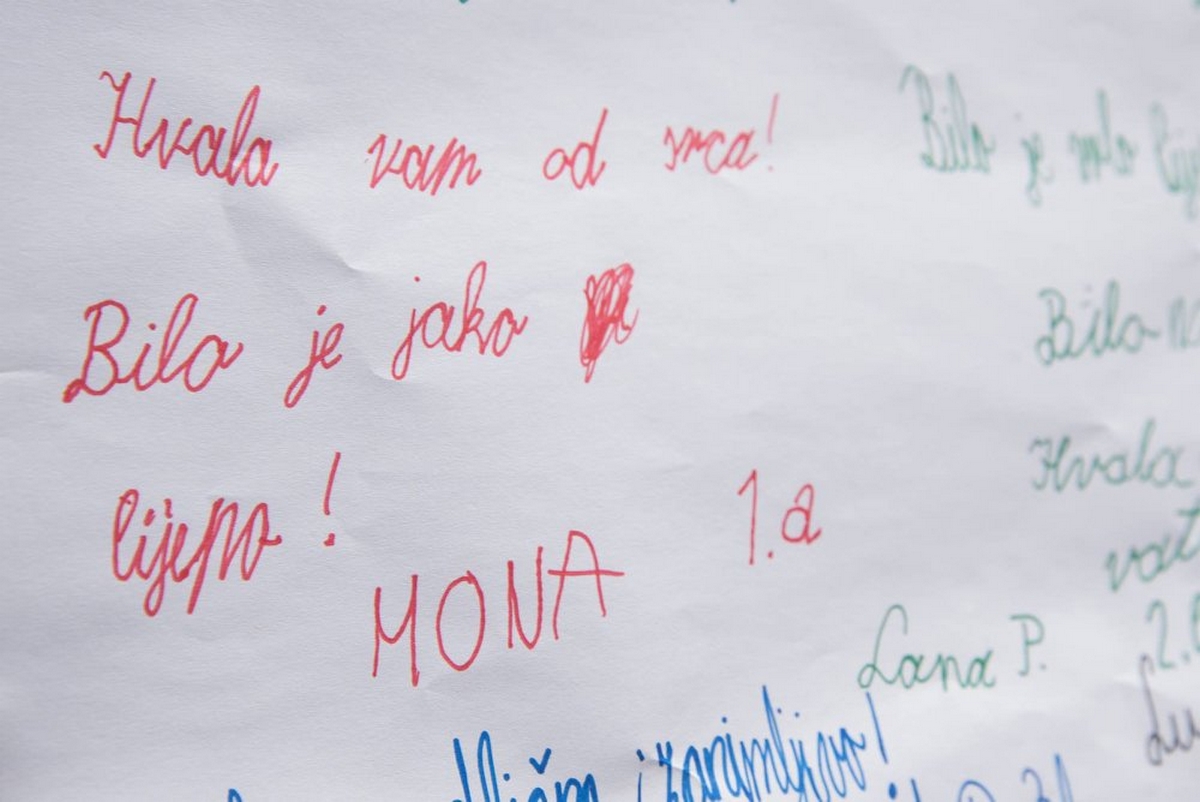 Hvala vam od srca!
Bilo je jako
lijepo!
MONA 1.a
Bilo je vrlo
Bilo
Hvala
Lana P.
i zanimljivo!